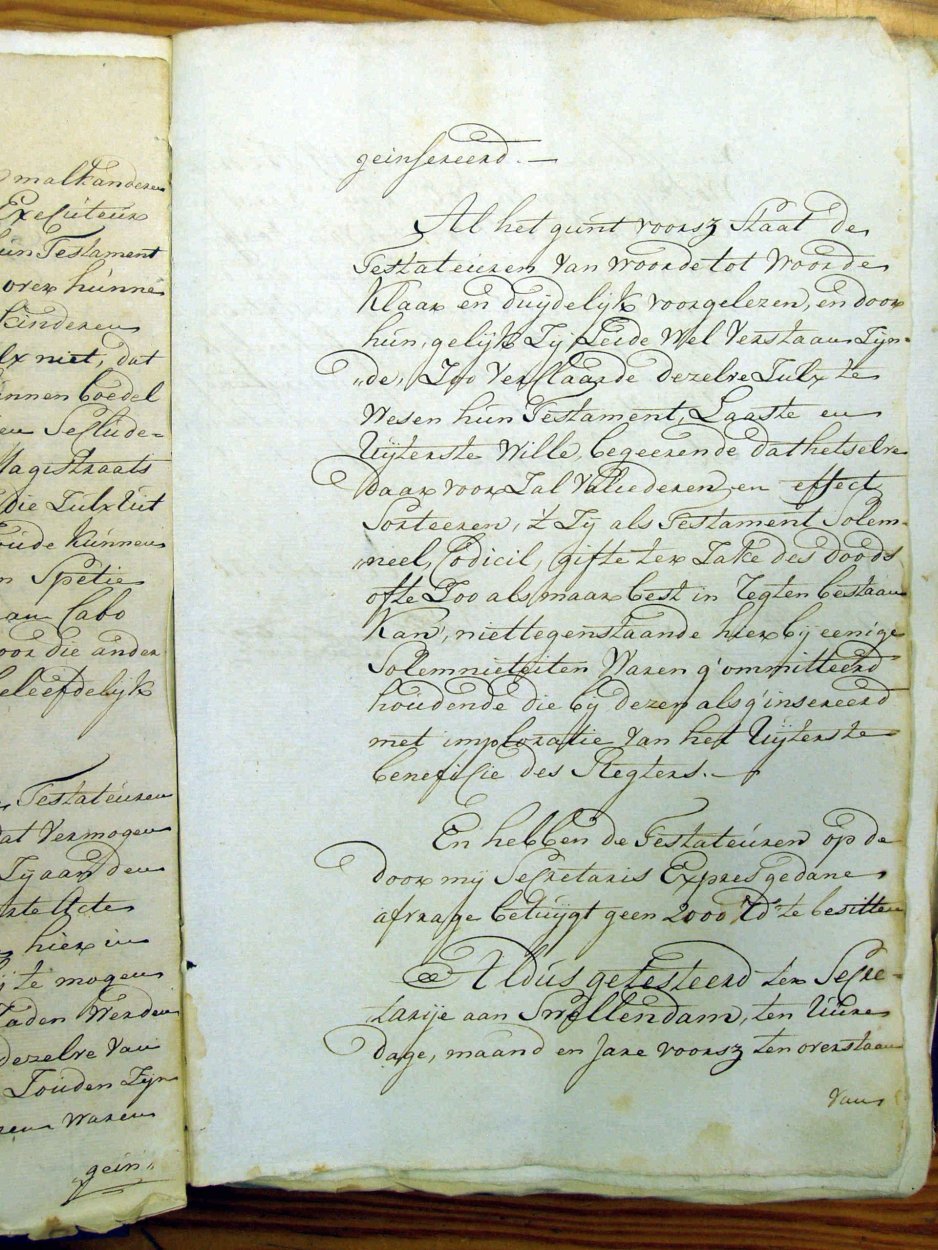 malkanderen
Executeur
hun Testament
over hunne
kinderen
niet, dat
innen boedel
en Seclude=
Magistraats
die Zulx uit
oude kunnen
in Spetie
aan Cabo
oor die ander
beleefdelijk
Testateuren
dat Vermogen
Zij aan den
Acte
hier in
te mogen
Laden Werden
dezelve Van
Zouden Zijn
Waren
gein„
geinsereerd.—
Al het gunt voorsz Staat de
Testateuren Van woorde tot Woorde
Klaar en duijdelijk voorgelezen, en door
hun, gelijk Zij Zeide Wel Verstaan Zijn-
„de, Zoo Verklaarde dezelve Zulx te
Wesen hun Testament, Laaste en
Uijterste Wille, begeerende dat hetselve
daar voor Zal Valideeren en effect
Sorteeren, 't Zij als Testament Solem-
„neel, Codicil, gifte ter Zake des doods
ofte Zoo als maar best in Regten bestaan
Kan, niettegenstaande hier bij eenige
Solemniteiten Waren g'ommitteerd
houdende die bij dezen als g'insereerd
met imploratie Van het Uijterste
beneficie des Regters.—
En hebben de Testateuren op de
door mij Secretaris Expres gedane
afvrage betuijgt geen 2000 Rds te besitten
Aldus getesteerd ter Secre-
tarije aan Swellendam, ten Uure
dage, maand en Jare voorsz ten overstaan
Van